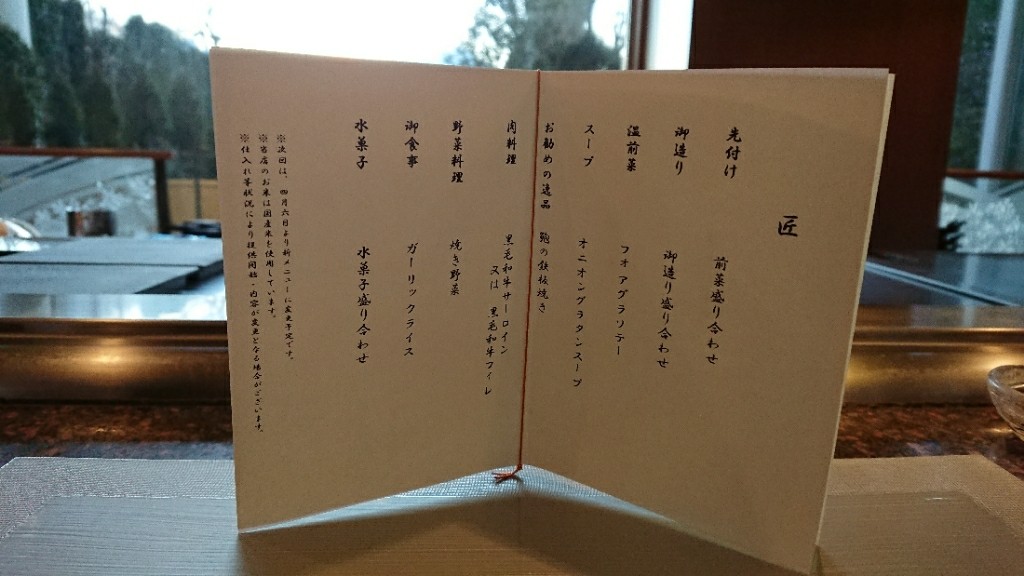 匠
先付け　前菜盛り合わせ
御造り　御造り盛り合わせ
温前菜　フォアグラソテー
スープ　オニオングラタンスープ
お勧めの逸品　鮑の鉄板焼き
肉料理　黒毛和牛サーロイン
又は　黒毛和牛フィレ
野菜料理　焼き野菜
御食事　ガーリックライス
水菓子　水菓子盛り合わせ
※次回は、四月六日より新メニューに変更予定です。
※当店のお米は国産米を使用しています。
※仕入れ等状況により提供開始・内容が変更となる場合がございます。